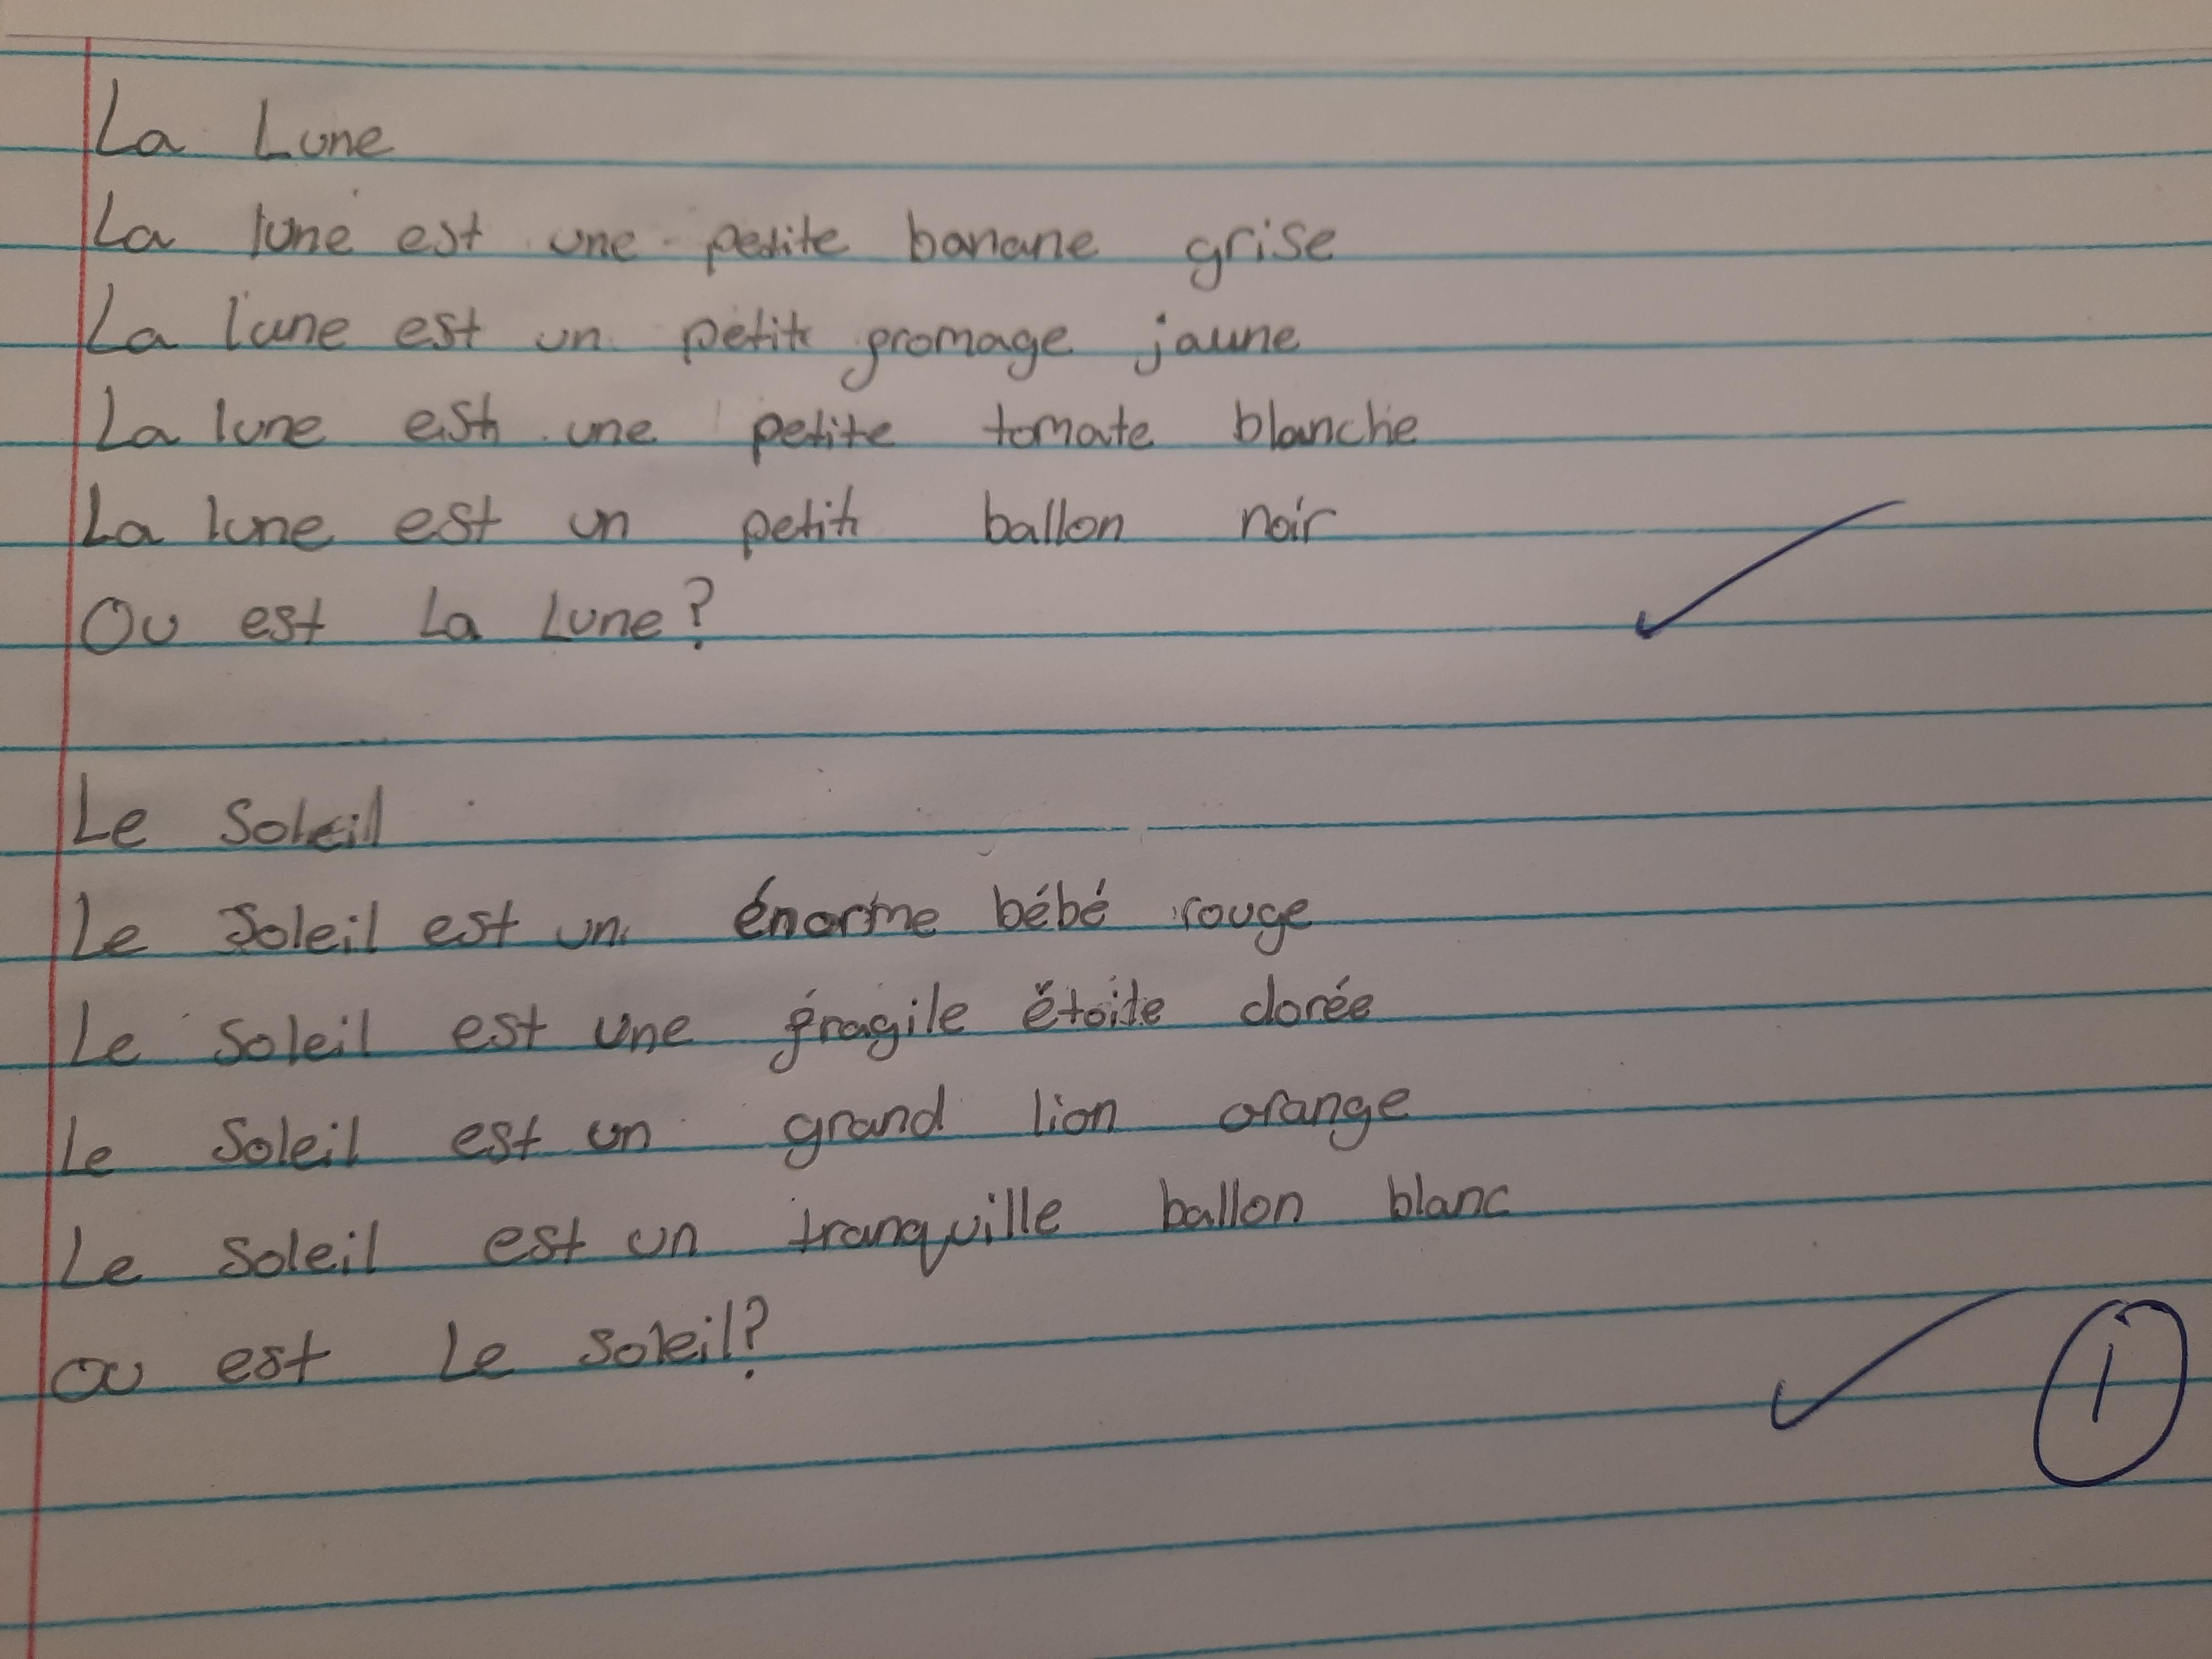 La Lune
La lune est une petite banane grise
La lune est un petit fromage jaune
La lune est une petite tomate blanche
La lune est un petit ballon noir
Ou est La Lune?
Le Soleil
Le Soleil est un énorme bébé rouge
Le Soleil est une fragile étoile dorée
Le Soleil est un grand lion orange
Le Soleil est un tranquille ballon blanc
ou est Le Soleil?
1